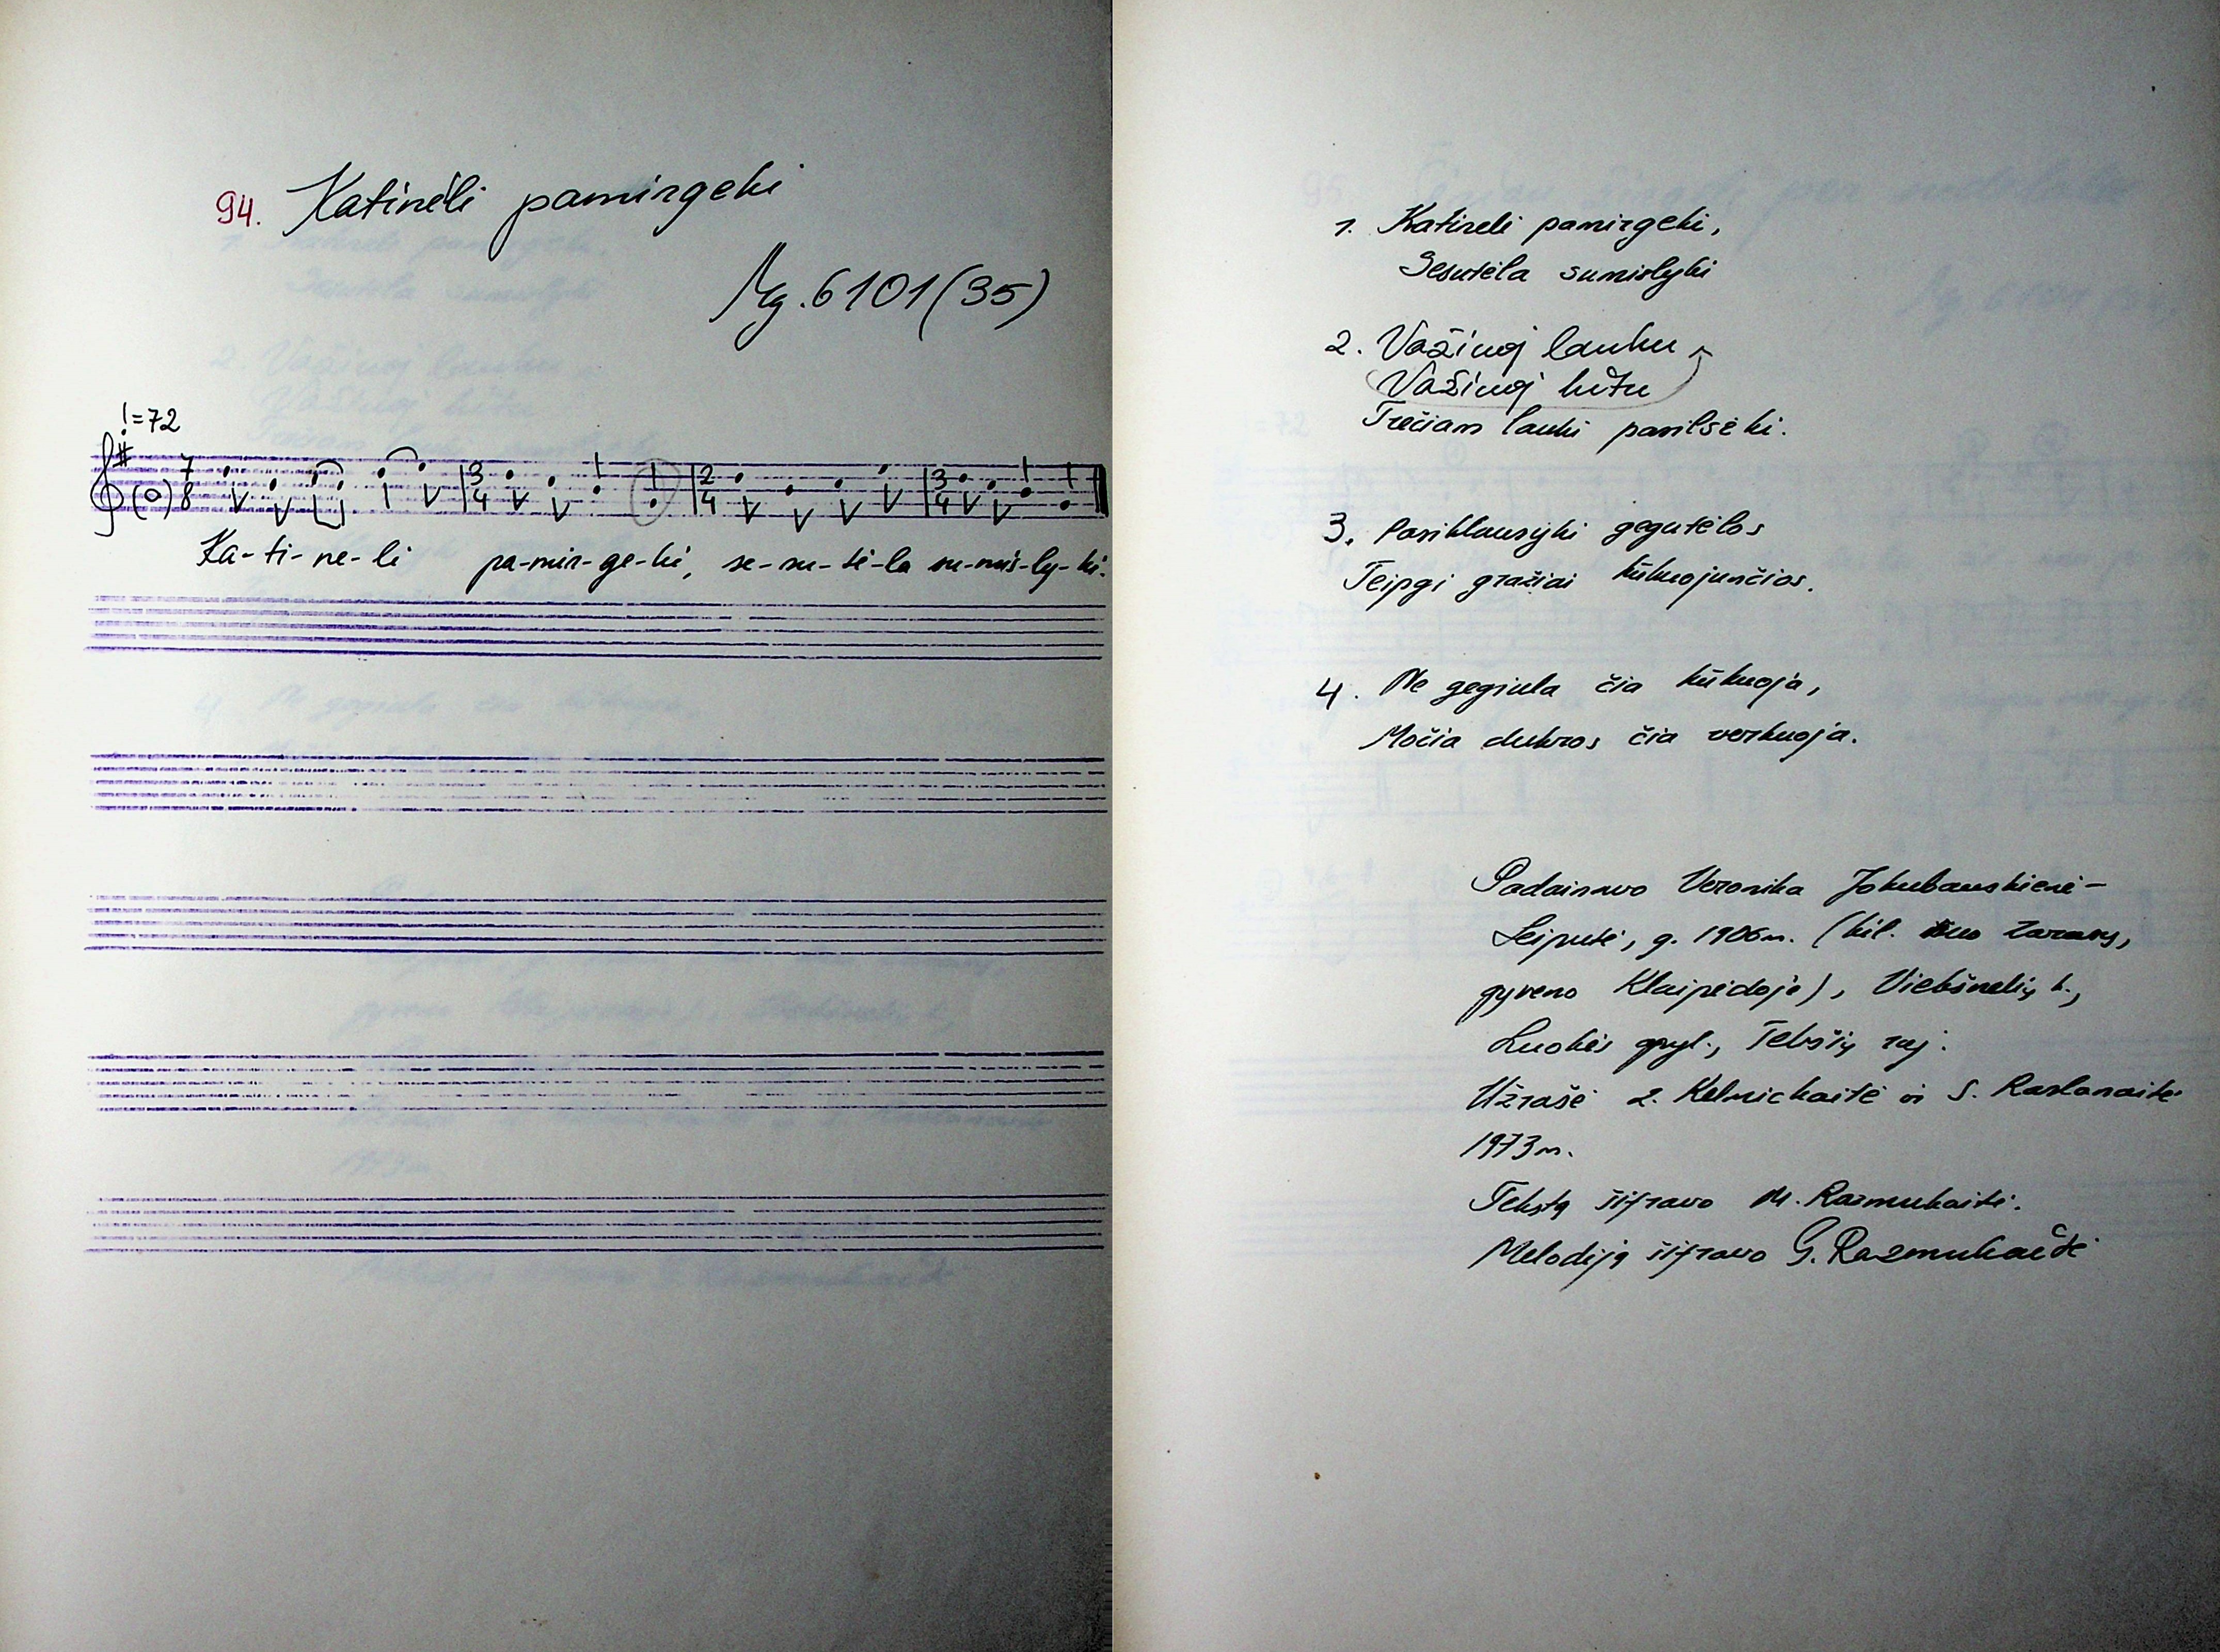 94. Katinėli pamirgeki
Mg. 6101(35)
!=72
7 8 3 4 2 4 3 4
Ka-ti-ne-li pa-mir-ge-ki, se-su-tė-la su-mis-ly-ki.
1. Katineli pamirgeki,
Sesutėla sumislyki
2. Važiuoj lauku
Važiuoj kitu
Trečiam lauki pasilsėki.
3. Pasiklausyki gegutėlos
Teipgi gražiai kūkuojunčios.
4. Ne gegiula čia kūkuoja,
Močia dukros čia verkuoja.
Padainavo Veronika Jakubauskienė-
Leiputė, g. 1906m. (kil. nuo
gyveno Klaipėdoje), Viekšnelių k.,
Luokės apyl., Telšių raj.
Užrašė Z. Kelmickaitė ir S. Raslanaitė
1973m.
Tekstą šifravo M. Razmukaitė.
Melodiją šifravo G. Razmukaitė